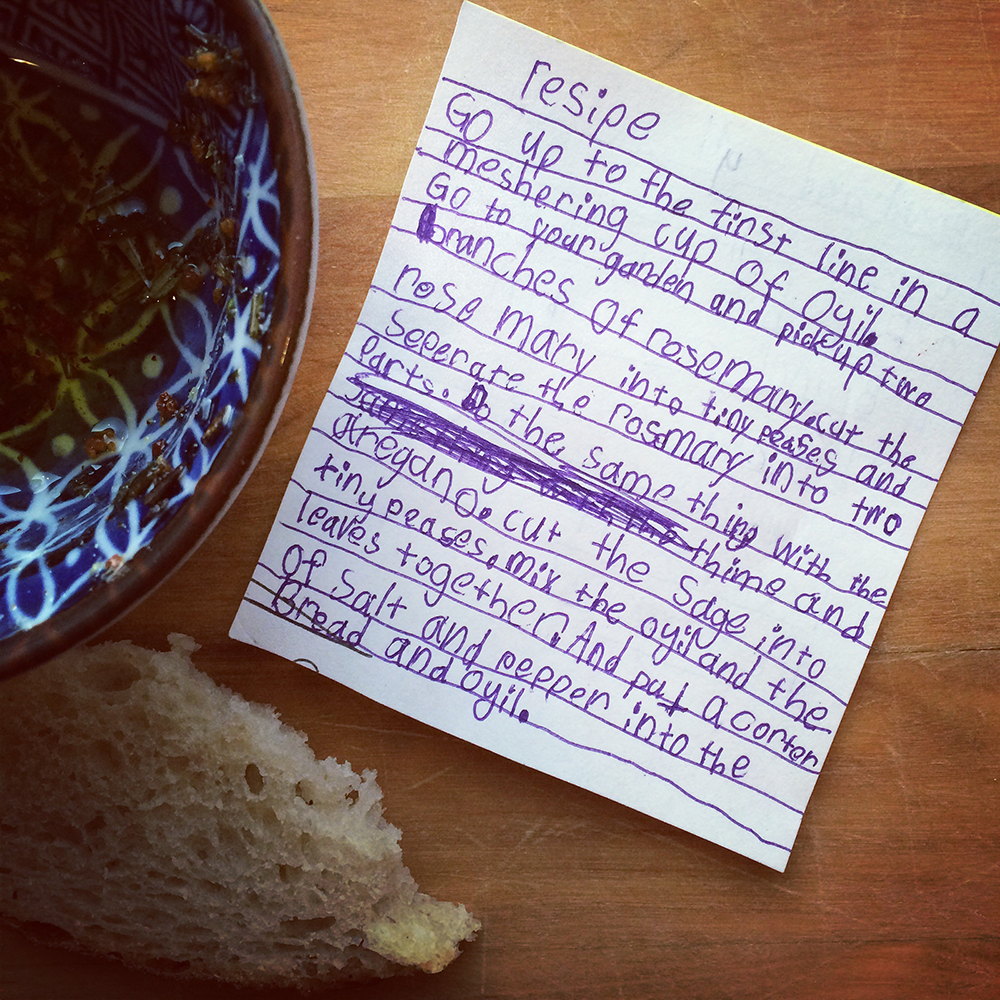 resipe
Go up to the first line in a
meshering cup of Oyil.
Go to your garden and pick up two
branches Of rosemary.cut the
rose mary into tiny peases and
Seperate the rosmary into two
Parts. Do the same thing with the
thime and
aregano. cut the Sage into
tiny peases. mix the oyil and the
leaves together. And put a corter
Of Salt and pepper into the
Bread and Oyil.